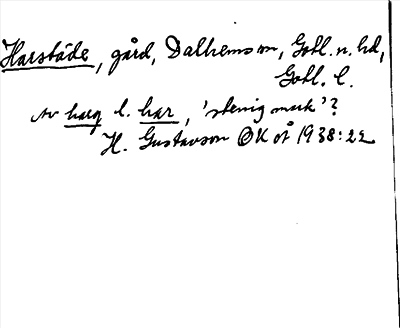 Harstäde, gård, Dalhems sn, Gotl. n. hd,
Gotl. l.
Av harg l. har, 'stenig mark'?
H. Gustavson ÖK av 1938:22